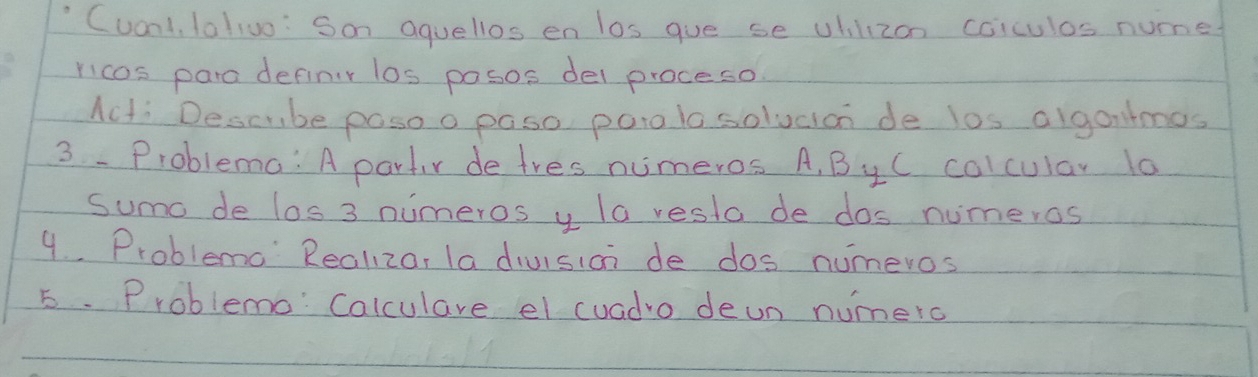 · Cuantitativo: Son aquellos en los que se utilizan cálculos nume-
ricos para definir los pasos del proceso.
Act: Describe paso a paso para la solución de los algoritmos
3 - Problema: A partir de tres números A, B y C calcular la
suma de los 3 números y la resta de dos números
4 - Problema: Realizar la división de dos números
5 - Problema: Calculare el cuadro de un número